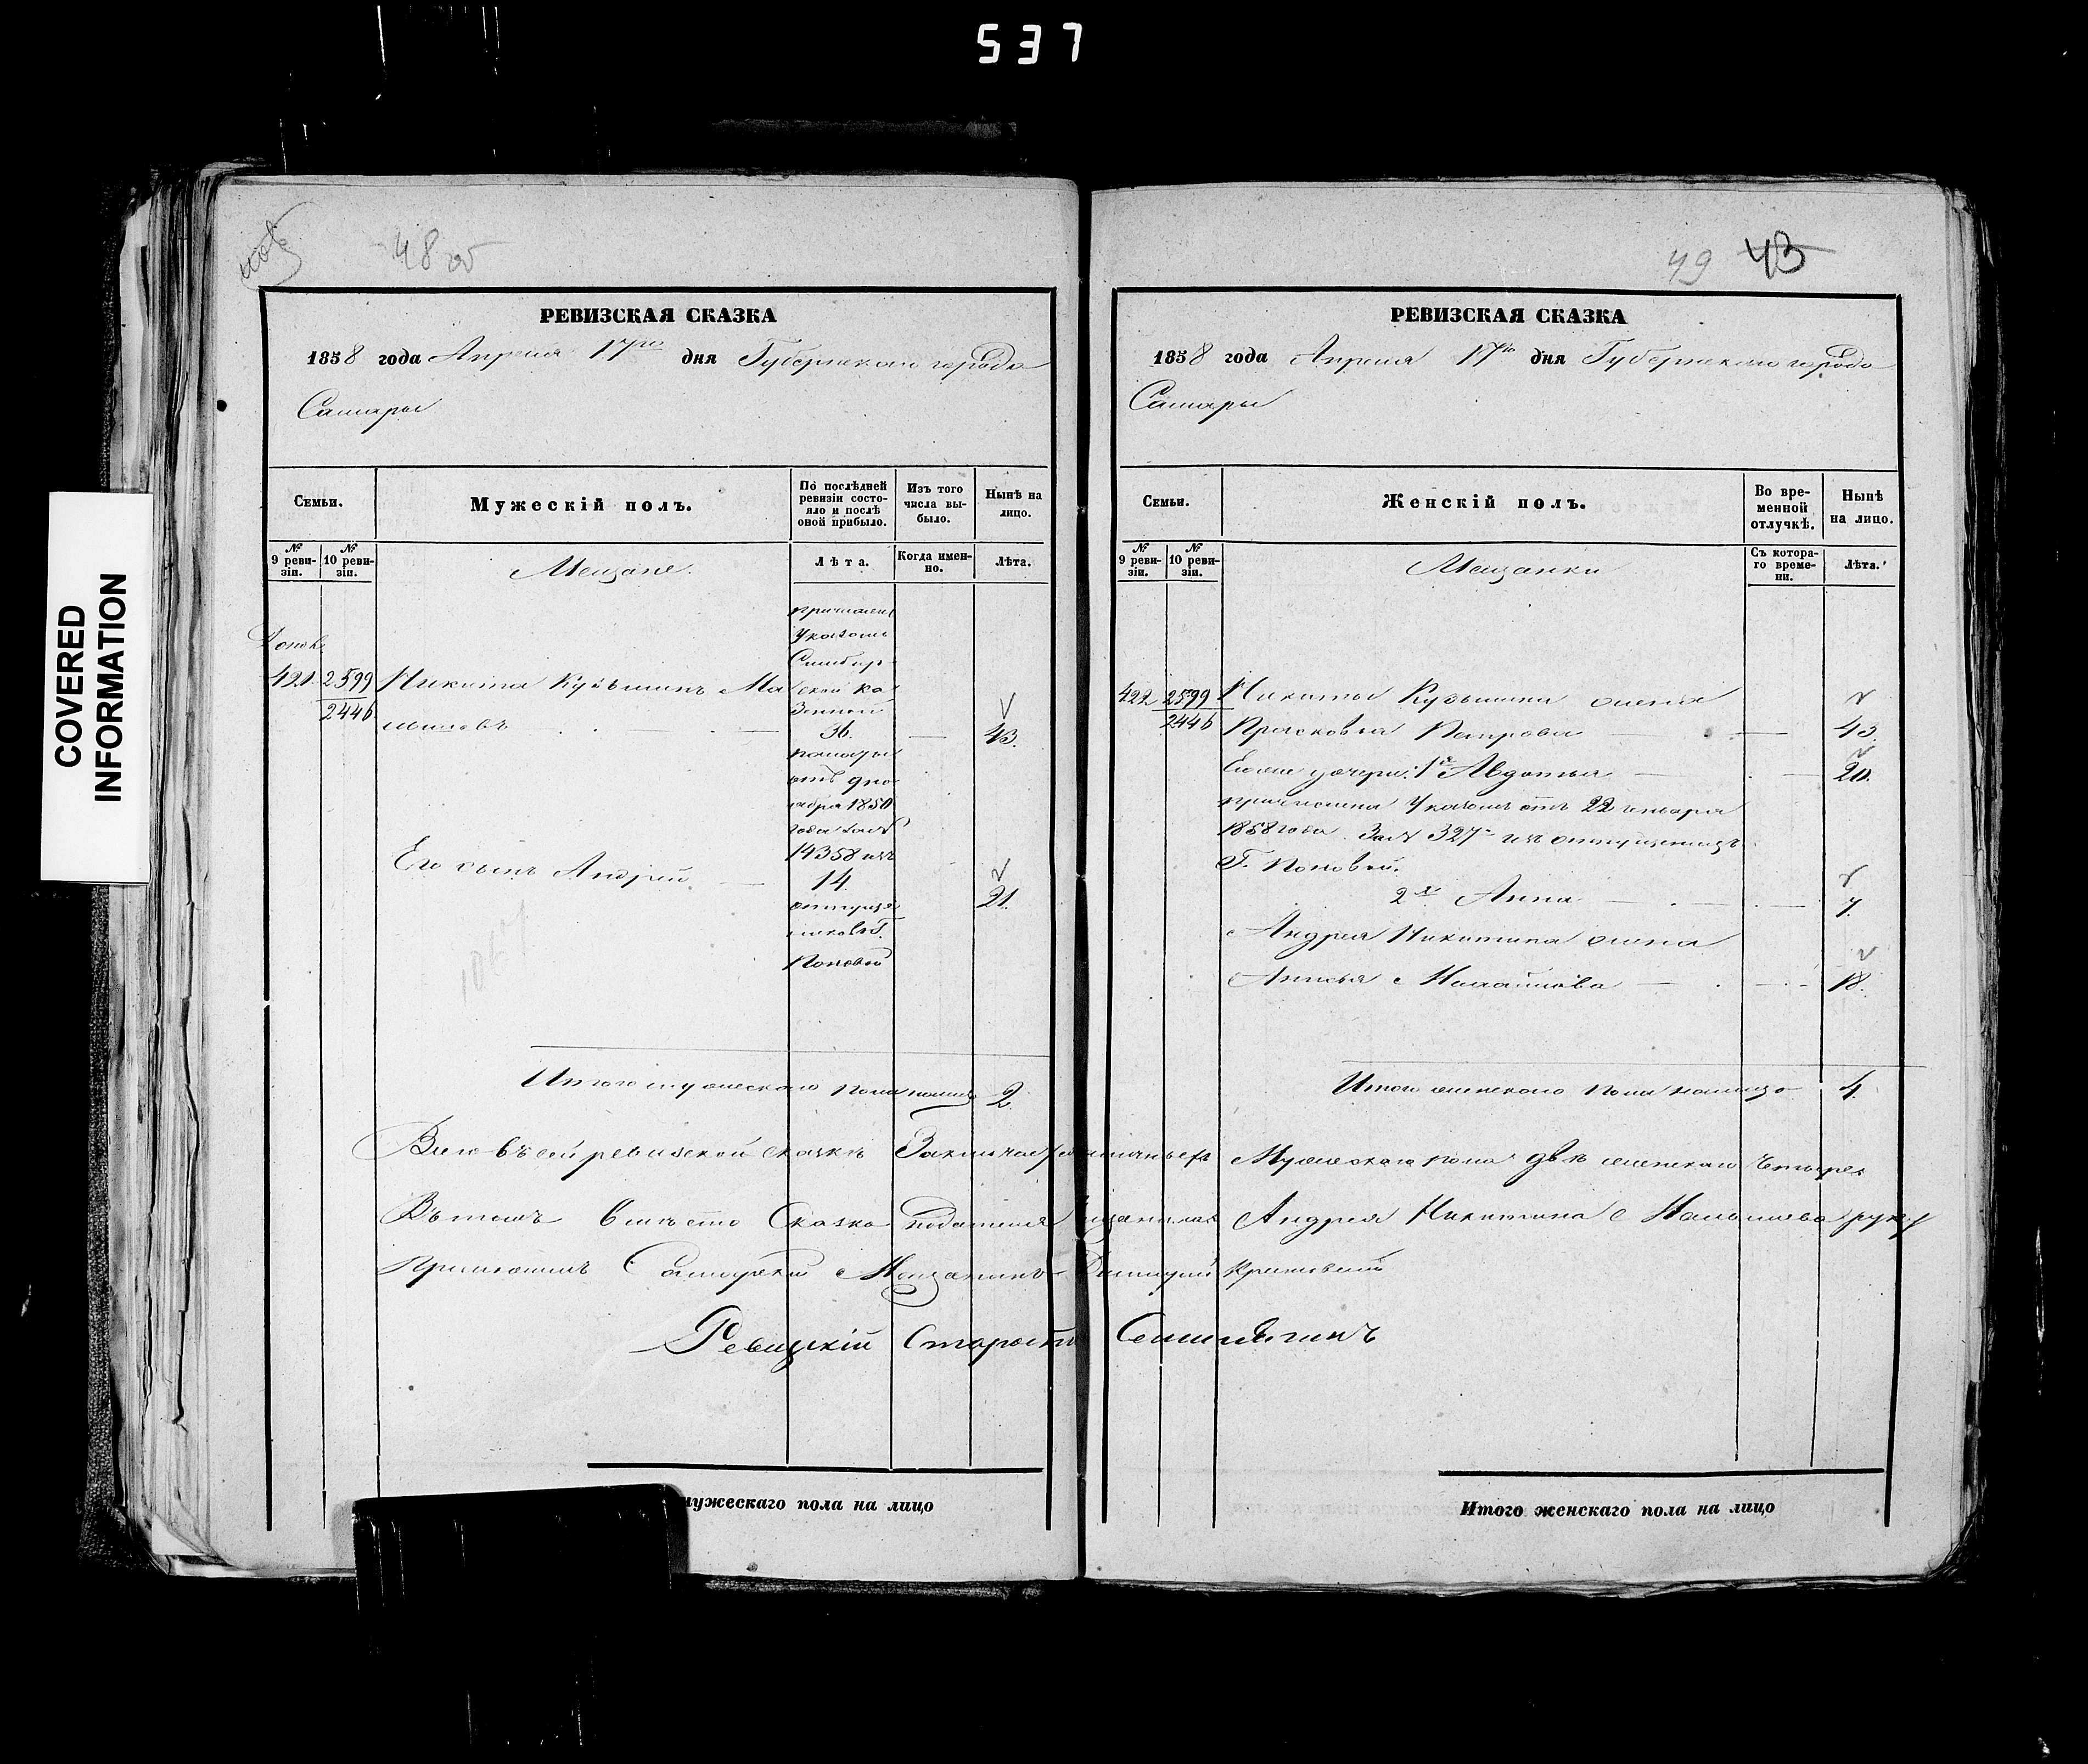 537
COVERED
INFORMATION
48 об
РЕВИЗСКАЯ СКАЗКА
1858 года Апреля 17го дня Губернскаго города
Самары
Семьи.
Мужескій полъ.
По послѣдней ревизіи состояло и послѣ оной прибыло.
Изъ того числа выбыло.
Нынѣ на лицо.
№ 9 ревизіи.
№ 10 ревизіи.
Мещане.
Лѣта.
Когда именно.
Лѣта.
причислен
Указомъ
Симбир-
421 2599 Никита Кузьминъ Ма
ской ка
2446
зенной
36. 43.
палаты
отъ 9 но
ября 1850
года за №
14358 изъ
Его сынъ Андрей 14. 21.
отпуще
Поповой
1067
Итого мужескаго пола налицо 2
мужескаго пола на лицо
49 43
РЕВИЗСКАЯ СКАЗКА
1858 года Апреля 17го дня Губернскаго города
Самары
Семьи.
Женскій полъ.
Во временной отлучкѣ.
Нынѣ на лицо.
№ 9 ревизіи.
№ 10 ревизіи.
Мещанки
Съ котораго времени.
Лѣта.
422 2599 Никиты Кузьмина жена
2446 Прасковья Петрова 43.
Ево же дочери: 1я Авдотья 20.
причислена Указомъ отъ 22 января
1858 года За № 327 изъ отпущенницъ
Г. Поповой.
2я Анна 7.
Андрея Никитина жена
18.
Итого женскаго пола налицо 4.
Всего въ сей ревизской сказкѣ Заключается Мужескаго пола двѣ женскаго Четыре
Въ томъ вместо Сказко подателя Андрея Никитина Малышева руку
Приложилъ Самарскій Мещанинъ Дмитрій
Ревизскій Староста
Итого женскаго пола на лицо